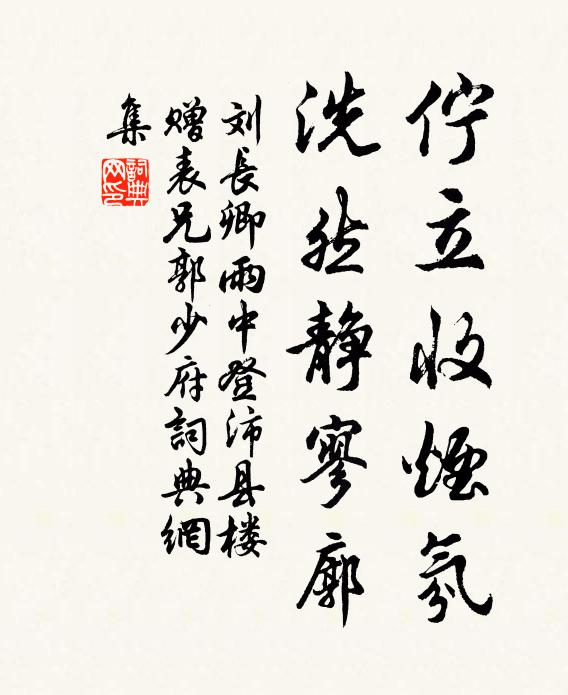 佇立收煙氛
洗然静寥廓
刘長卿雨中登沛县楼
贈表兄郭少府詞典網
集
詞典網印